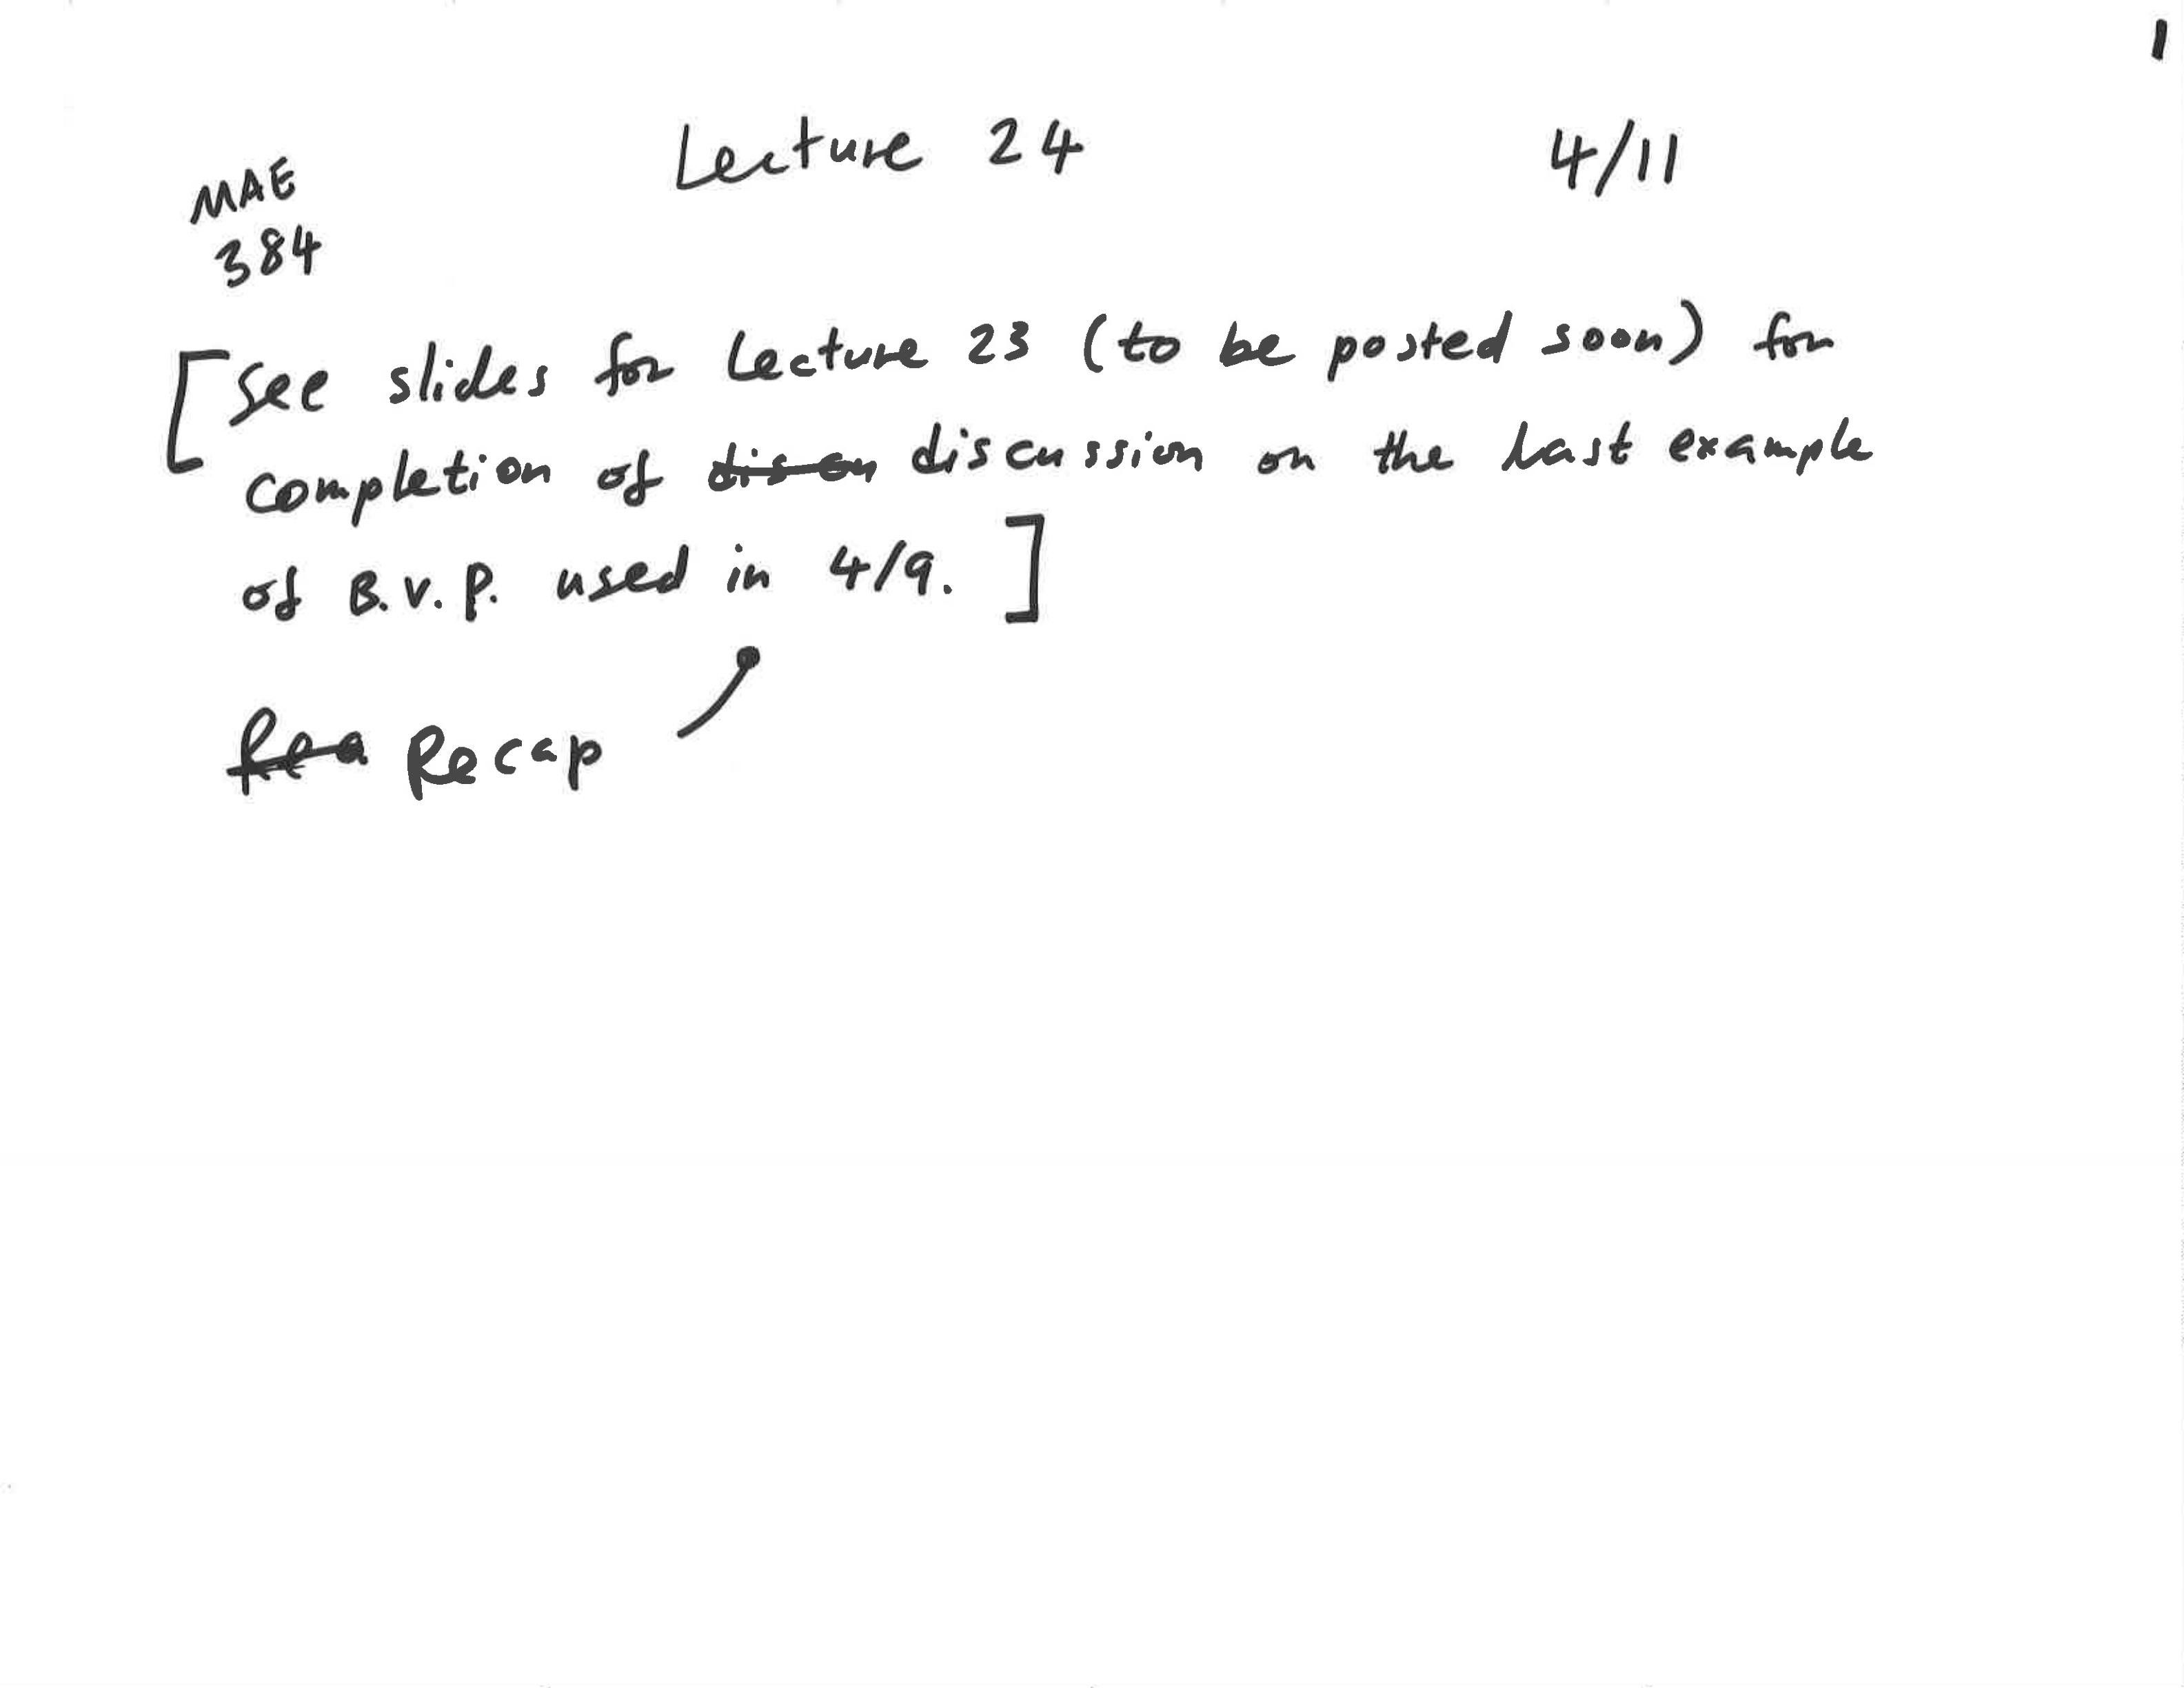 1
Lecture 24 4/11
MAE
384
[see slides for Lecture 23 (to be posted soon) for
completion of discussion on the last example
of B.V.P. used in 4/9.]
Recap